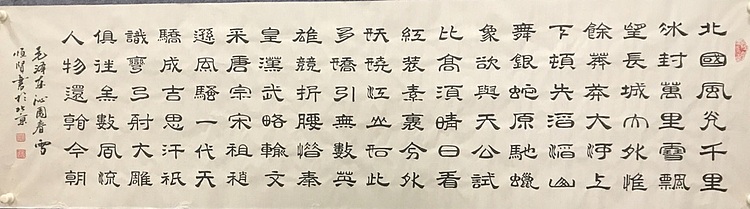 北國風光千里
冰封萬里雪飄
望長城內外惟
餘莽莽大河上
下頓失滔滔山
舞銀蛇原馳蠟
象欲與天公試
比高須晴日看
紅裝素裹分外
妖嬈江山如此
多嬌引無數英
雄競折腰惜秦
皇漢武略輸文
采唐宗宋祖稍
遜風騷一代天
驕成吉思汗祇
識彎弓射大雕
俱往矣數風流
人物還看今朝
毛澤東沁園春雪
書於北京